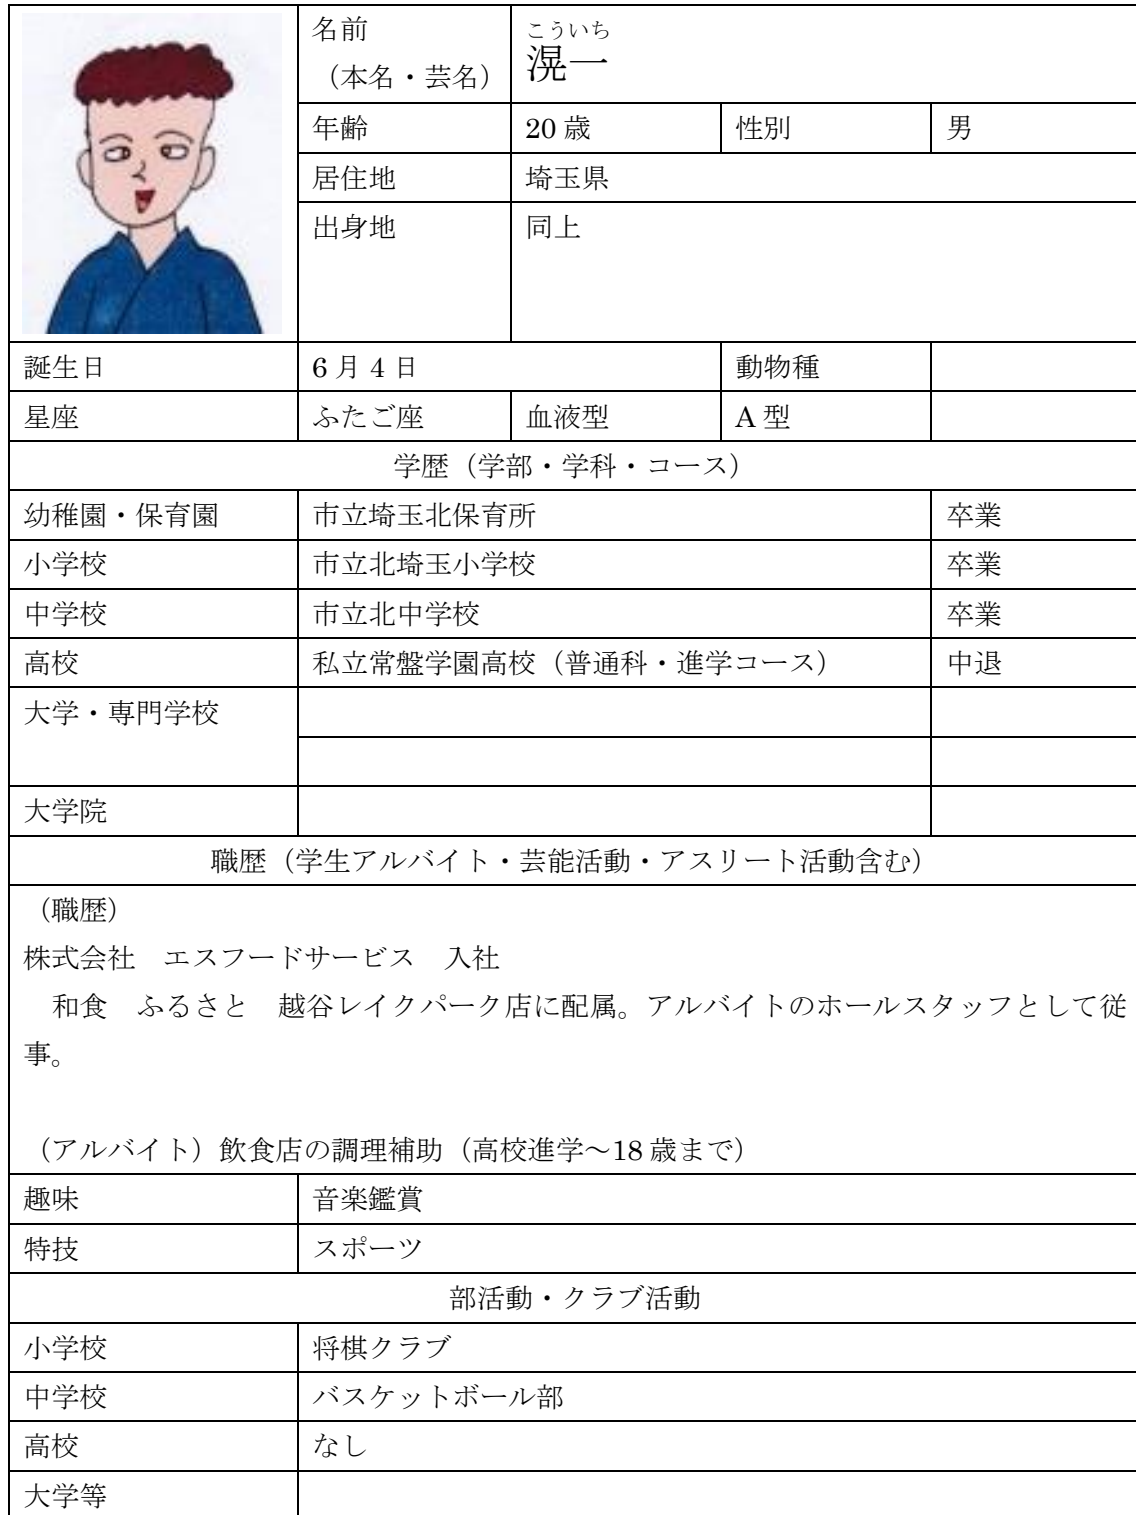 名前
(本名・芸名)
こういち
滉一
年齢 20歳 性別 男
居住地 埼玉県
出身地 同上
誕生日 6月4日 動物種
星座 ふたご座 血液型 A型
学歴(学部・学科・コース)
幼稚園・保育園 市立埼玉北保育所 卒業
小学校 市立北埼玉小学校 卒業
中学校 市立北中学校 卒業
高校 私立常盤学園高校(普通科・進学コース) 中退
大学・専門学校
大学院
職歴(学生アルバイト・芸能活動・アスリート活動含む)
(職歴)
株式会社 エスフードサービス 入社
和食 ふるさと 越谷レイクパーク店に配属。アルバイトのホールスタッフとして従
事。
(アルバイト)飲食店の調理補助(高校進学~18歳まで)
趣味 音楽鑑賞
特技 スポーツ
部活動・クラブ活動
小学校 将棋クラブ
中学校 バスケットボール部
高校 なし
大学等